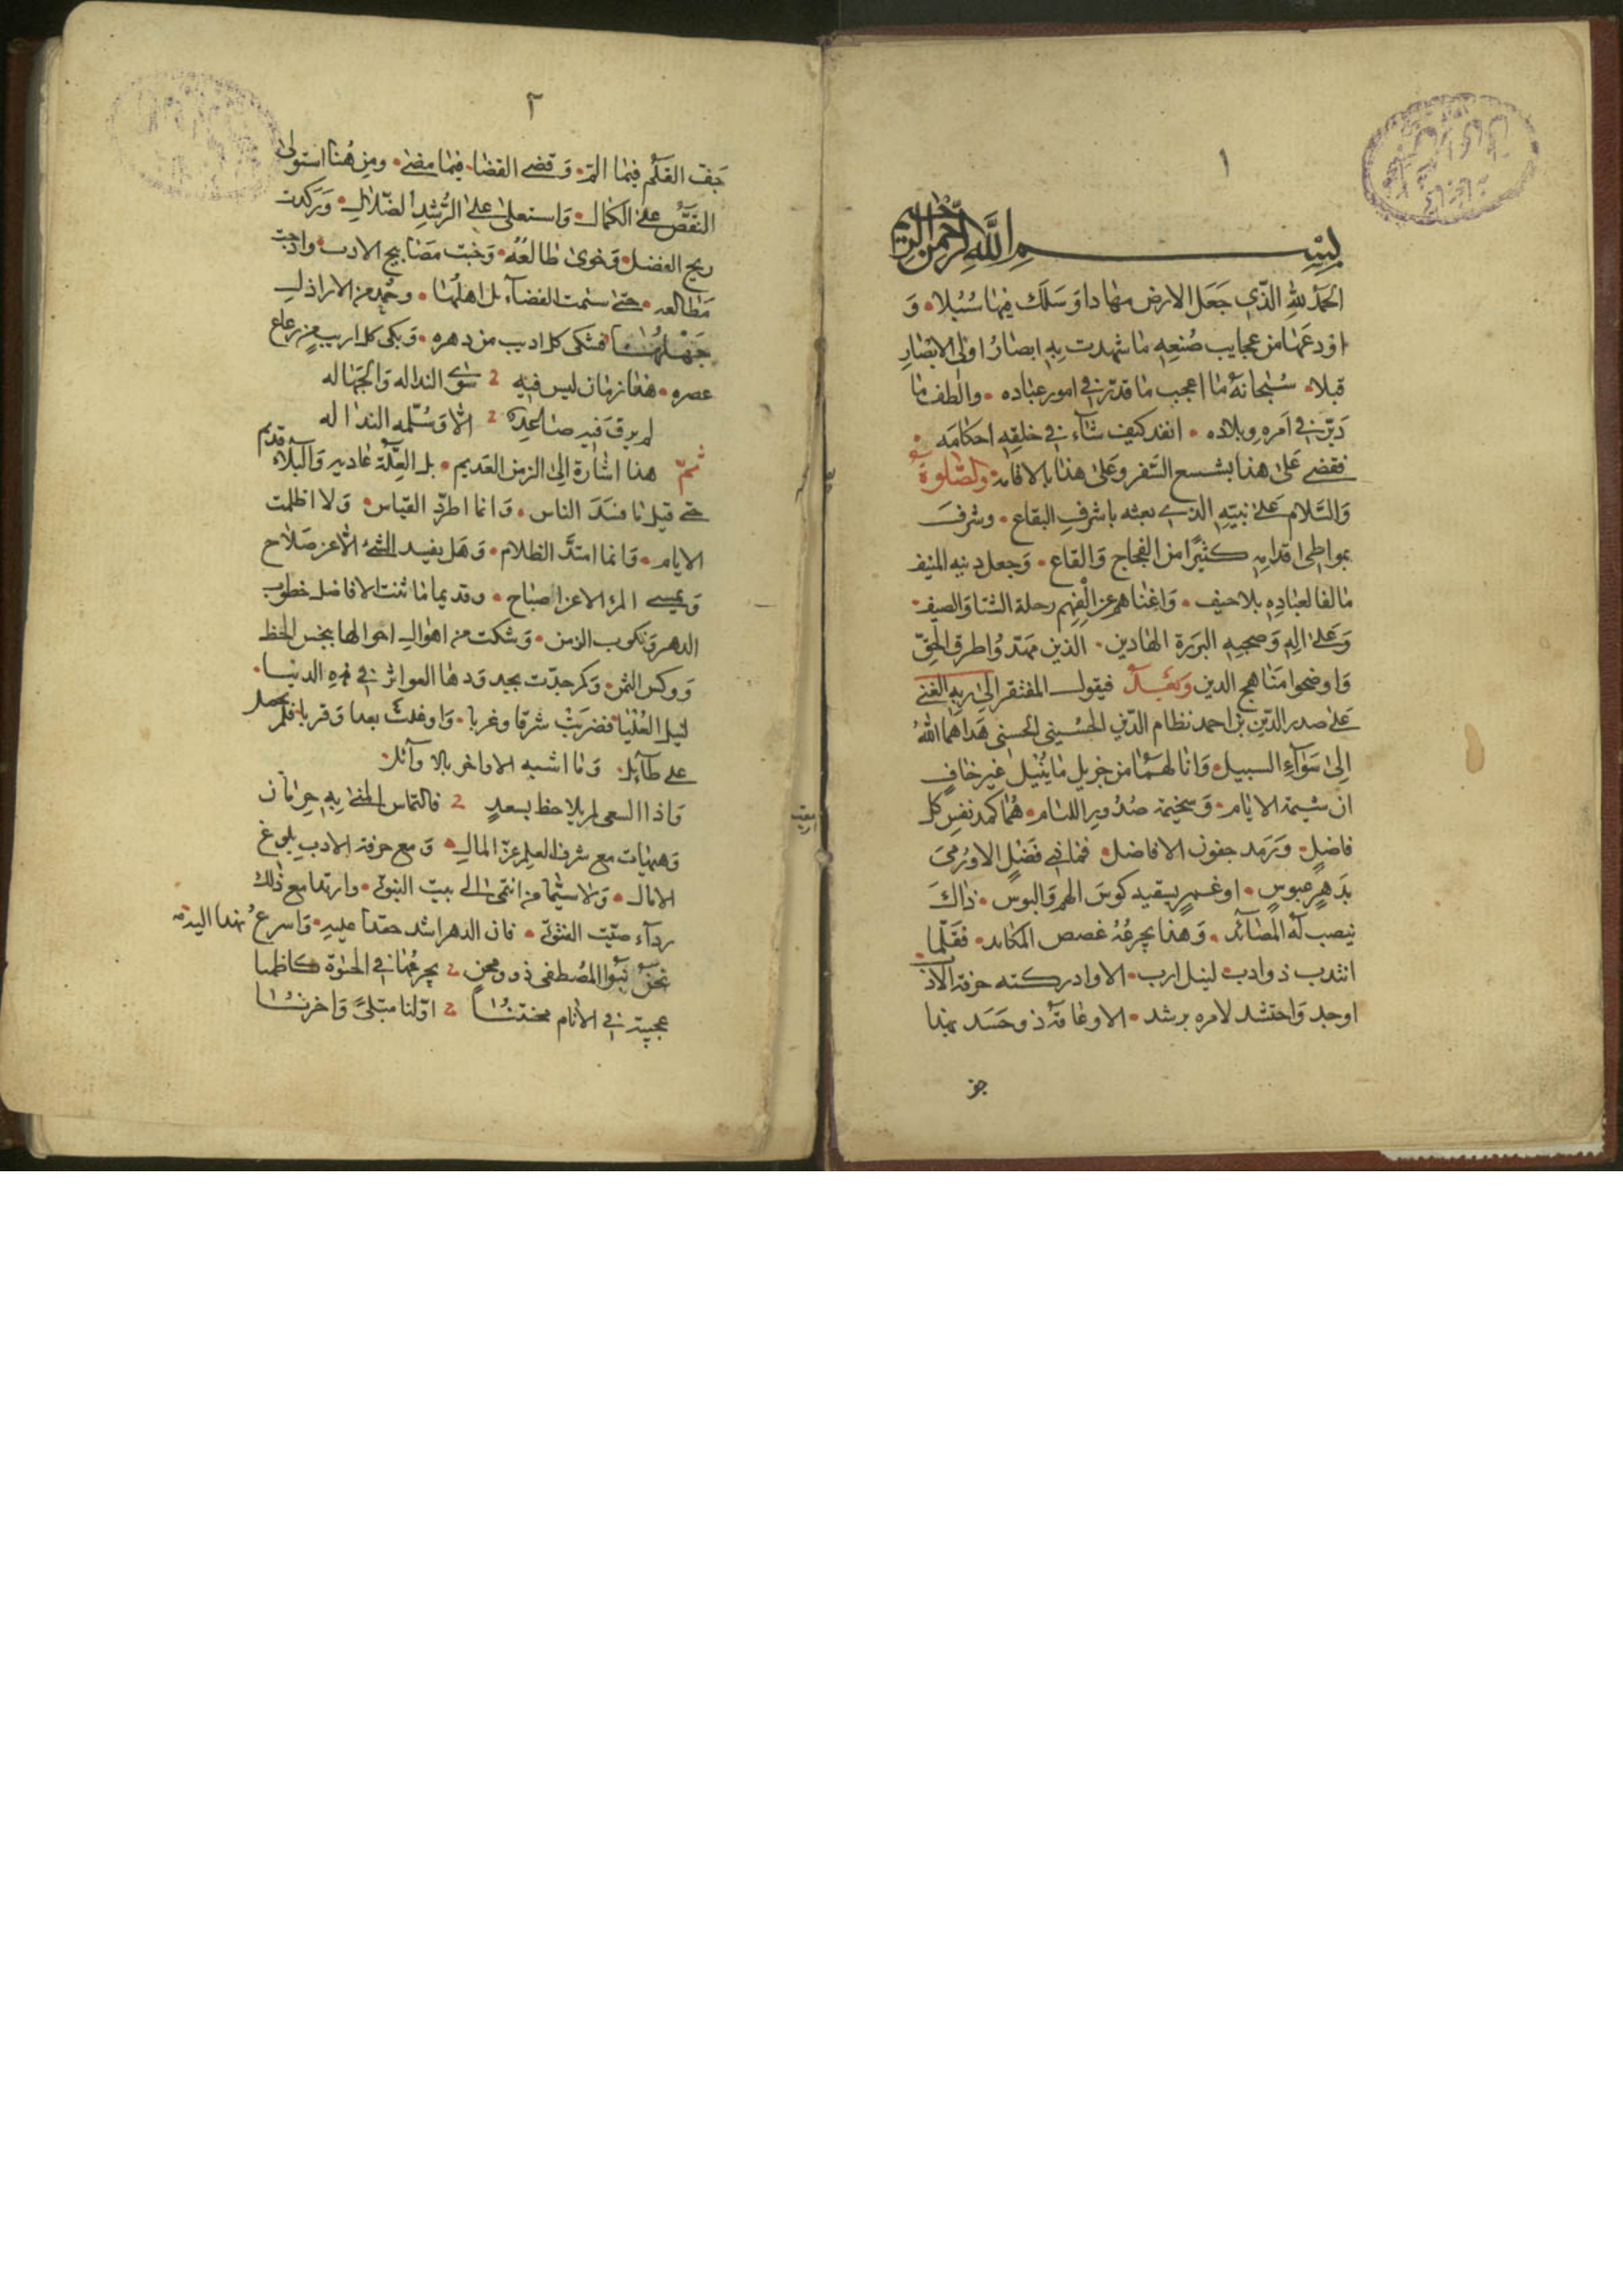 ١
بسم الله الرحمن الرحيم
الحمد لله الذي جعل الارض مهادا وَسَلَك فيها سُبُلا وَ
اودعَها من عجايب صُنعِه ما شهدت بِهِ ابصارُ اولى الابصارِ
قبلا سُبحانهُ ما اعجب ما قدّر في امور عباده والطف ما
دَبّر في اَمره وبلاده انفد كيف شآء في خلقِهِ احكامَه
فقضى عَلى هذا بشسع السّفر وعَلى هذا بالاقامة والصّلوة
وَالسّلام عَلى نبيّهِ الذي بعثه باشرفِ البقاع وشرفَ
بمواطِئِ اقدامِهِ كثيرًا من الفجاج وَالقاع وَجعل دينه المنيف
مالفا لعبادِهِ بلا حيف وَاغناهم عن الفهم رحلة الشتا وَالصيف
وَعَلى الِهِ وَصحبِهِ البرَرة الهادين الذين مهّدُوا طرق الحقّ
وَاوضحوا مَناهج الدين وَبعْدُ فيقول المفتقر الى ربِهِ الغني
عَلى صدر الدّين بن احمد نظام الدّين الحسيني الحسني هَداهما اللهُ
الى سَوآءِ السبيل وَانالهمَا من جزيل ما يُنيل غير خافٍ
ان شيمة الايام وَسخيمة صُدُورِ اللئام هُما كمد نفس كل
فاضلٍ وَرَمَد جفون الافاضل فما في فَضلٍ الا وَرُمىَ
بدَهرٍ عبوسٍ او غمرٍ يسقيه كوسَ الهم وَالبوس ذاكَ
ينصب لهُ المصائد وَهذا يجرعُهُ غصص المكائد فقلّما
انتدب ذو ادب لينل ارب الا وادركته حرفة الاد
اوجد وَاحتشد لامره برشد الا وعاقهُ ذو حَسَد بهذا
جف
٢
جَف القلَم فيما المّ وَقضى القضا فيما مضى ومِن هُنا استولى
النّقصُ على الكمال وَاستعلى على الرُّشدِ الضّلال وَرَكدت
ريح الفضل وَخوى طالعُهُ وَخَبَت مصَابيح الادب وادجت
مَطالعه حتى سئمت الفضآء بل اهلُهَا وحُمِدَ عن الاراذل
جَهْلُهَا فشكى كل اديب من دهره وَبكى كل اريب من رعاع
عصره هذا زمان ليس فيهِ سوى النداله وَالجهاله
لم يرقَ فيهِ صاعِدٌ الا وَسُلّمه النداله
ثمّ هذا اشارة الى الزمن القديم بل العِلّة عاديه وَالبلآء قديم
حتى قيل ما فسَدَ الناس وَانما اطرّد القياس وَلا اظلمت
الايام وَانما امتدّ الظلام وَهَل يفسد الشئ الا عن صَلاح
وَيمسى المرء الا عن اصباح وقديما مَا ثنت الافاضل خطوب
الدهر وَنكوب الزمن وَشكت من اهوالِ احوالها بخس الحظ
وَوكس الثمن وَكم جدّت بجد وَدهَا العواثر في هٰذِهِ الدنيا
لنيل العُليا فضرَبَتْ شرقا وغربا وَاوغلت بعدا وَقربا فلم يحصل
على طآئل وَما اشبه الاواخر بالاوآئل
وَاذا السعى لم يلاحظ بسعدٍ فالتماس المنى بِهِ حِرمان
وَهيهات مع شرف العلم عزّ المال وَمع حرفة الادبِ بلوغ
الامال وَلا سيّما من انتمى الى بيت النبوّة وارتدا مع ذلك
ردآء صيّت الفتوّة فان الدهر اشد حقدا عليهِ وَاسرعُ نهدا اليه
نحنُ بَنُوا المُصطفى ذوو محنٍ يجرعُها في الحيوة كاظمنا
عجيبة في الانام محنتُنا اوّلنا مبتلىً وَاخرنا